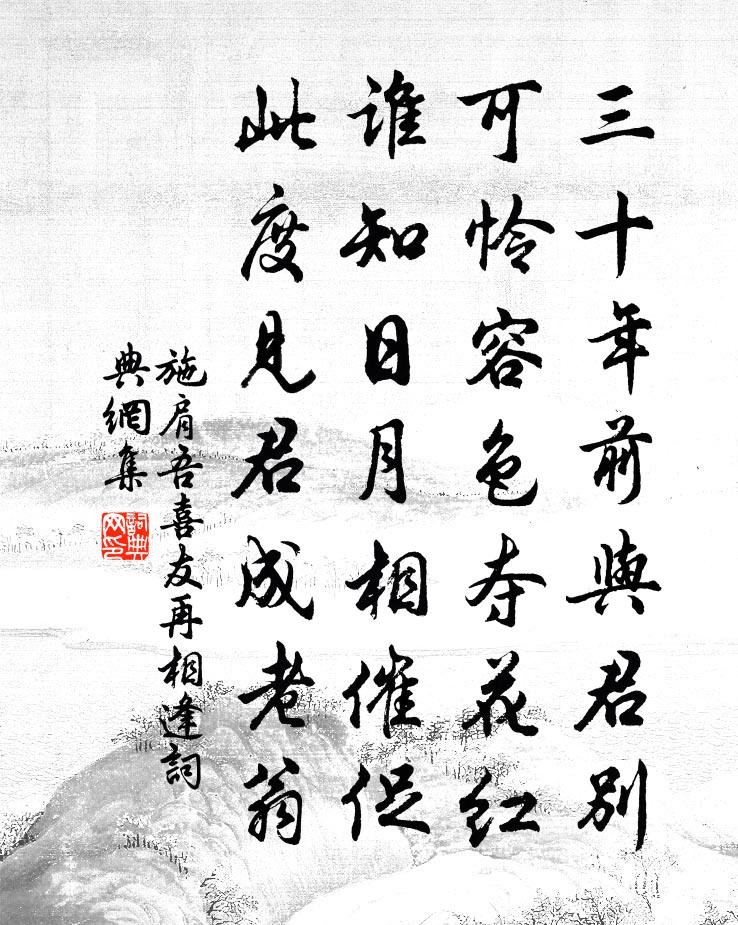 三十年前與君別
可怜容色夺花红
谁知日月相催促
此度見君成老翁
施肩吾喜友再相逢詞
典網集
詞典
网印